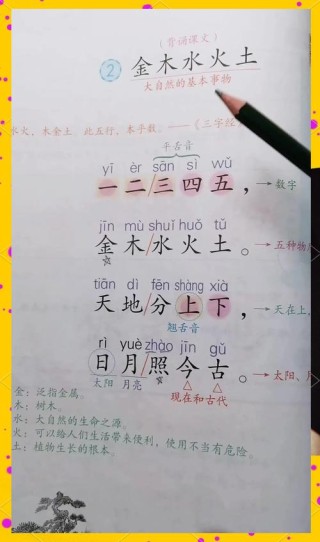 （背诵课文）
2 金木水火土
大自然的基本事物
水火，木金土。此五行，本乎数。——《三字经
平舌音
yī èr sān sì wǔ
一二/三四五，→数字
jīn mù shuǐ huǒ tǔ
金木/水火土。→五种物
tiān dì fēn shàng xià
天地/分上下，→天在上，
翘舌音
rì yuè zhào jīn gǔ
日月/照今古。→太阳、月
太阳 月亮 现在和古代
金：泛指金属。
木：树木。
水：大自然的生命之源。
火：可以给人们生活带来便利，使用不当有危险。
土：植物生长的根本。